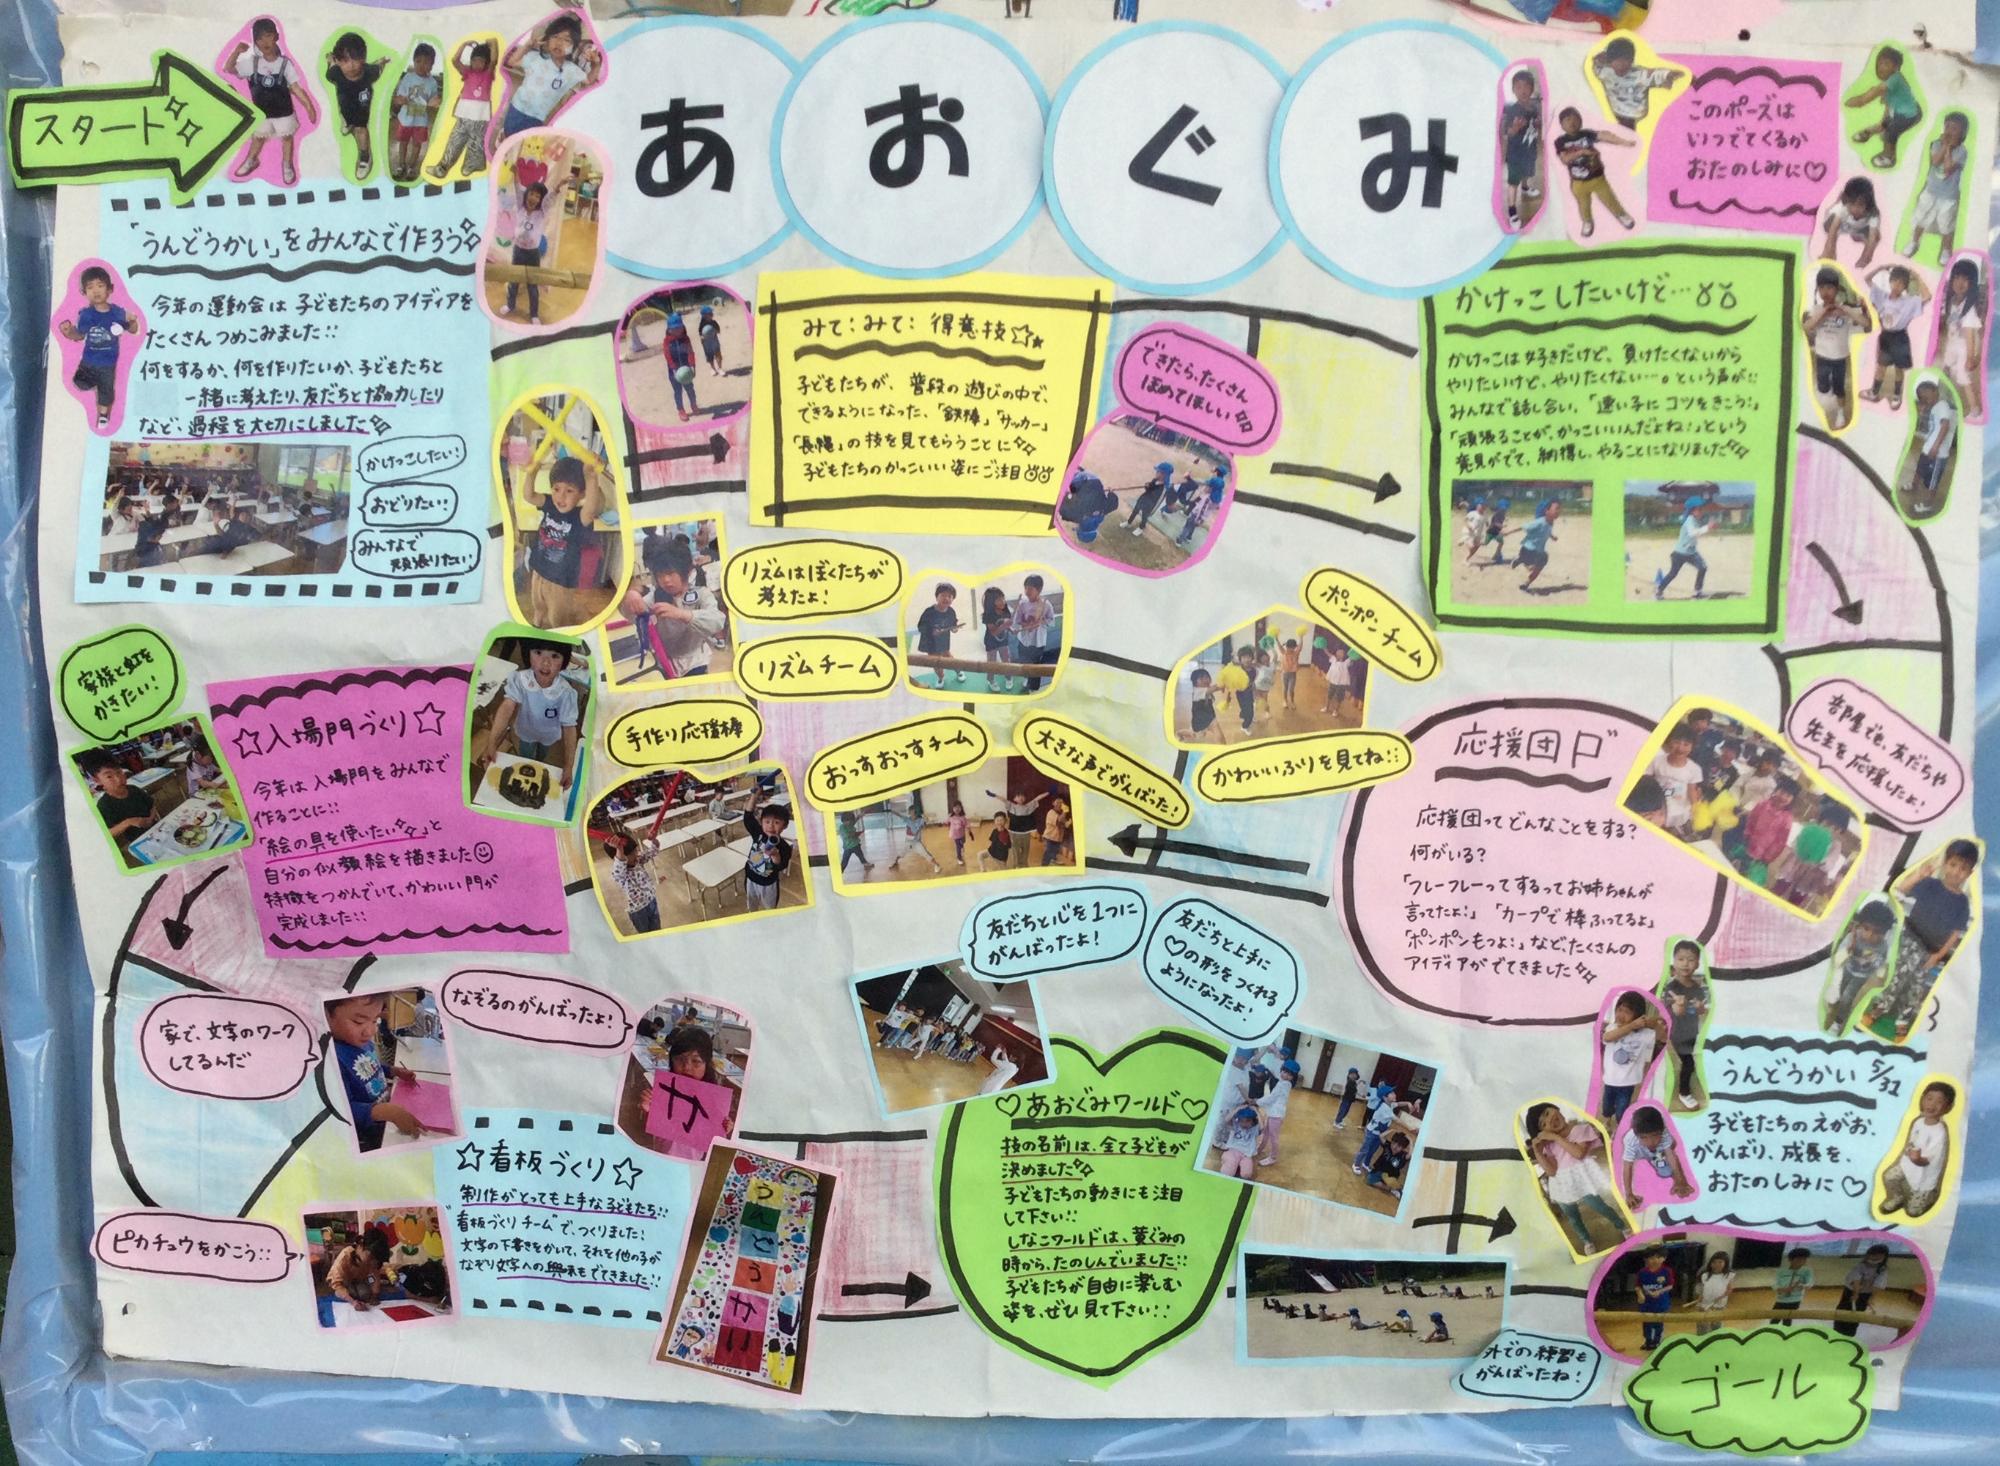 スタート
あおぐみ
このポーズは
いつでてくるか
おたのしみに♡
「うんどうかい」をみんなで作ろう
今年の運動会は子どもたちのアイディアを
たくさんつめこみました::
何をするか、何を作りたいか、子どもたちと
一緒に考えたり、友だちと協力したり
など、過程を大切にしました
かけっこしたい!
おどりたい!
みんなで
頑張りたい!
みて:みて: 得意技☆
子どもたちが、普段の遊びの中で、
できるようになった、「鉄棒」「サッカー」
「長縄」の技を見てもらうことに
子どもたちのかっこいい姿にご注目
できたら、たくさん
ほめてほしい
かけっこしたいけど…
かけっこは好きだけど、負けたくないから
やりたいけど、やりたくない…。という声が::
みんなで話し合い、「速い子にコツをきこう!」
「頑張ることが、かっこいいんだよね!」という
発見がでて、納得し、やることになりました
リズムはぼくたちが
考えたよ!
リズムチーム
ポンポンチーム
かわいいふりを見てね::
手作り応援棒
おっすおっすチーム
大きな声でがんばった!
応援団
応援団ってどんなことをする?
何がいる?
「フレーフレーってするってお姉ちゃんが
言ってたよ!」「カープで棒ふってるよ」
「ポンポンもつよ!」など、たくさんの
アイディアがでてきました
部屋でも、友だちや
先生を応援したよ!
家族と虹を
かきたい!
☆入場門づくり☆
今年は入場門をみんなで
作ることに::
「絵の具を使いたい」と
自分の似顔絵を描きました
特徴をつかんでいて、かわいい門が
完成しました::
家で、文字のワーク
してるんだ
なぞるのがんばったよ!
か
ピカチュウをかこう::
☆看板づくり☆
制作がとっても上手な子どもたち::
"看板づくりチーム"で、つくりました!
文字の下書きをかいて、それを他の子が
なぞり文字への興味もでてきました::
うんどうかい
友だちと心を1つに
がんばったよ!
友だちと上手に
♡の形をつくれる
ようになったよ!
♡あおぐみワールド♡
技の名前は、全て子どもが
決めました
子どもたちの動きにも注目
して下さい::
しなこワールドは、黄ぐみの
時から、たのしんでいました::
子どもたちが自由に楽しむ
姿を、ぜひ見て下さい::
外での練習も
がんばったね!
うんどうかい 5/31
子どもたちのえがお、
がんばり、成長を、
おたのしみに♡
ゴール